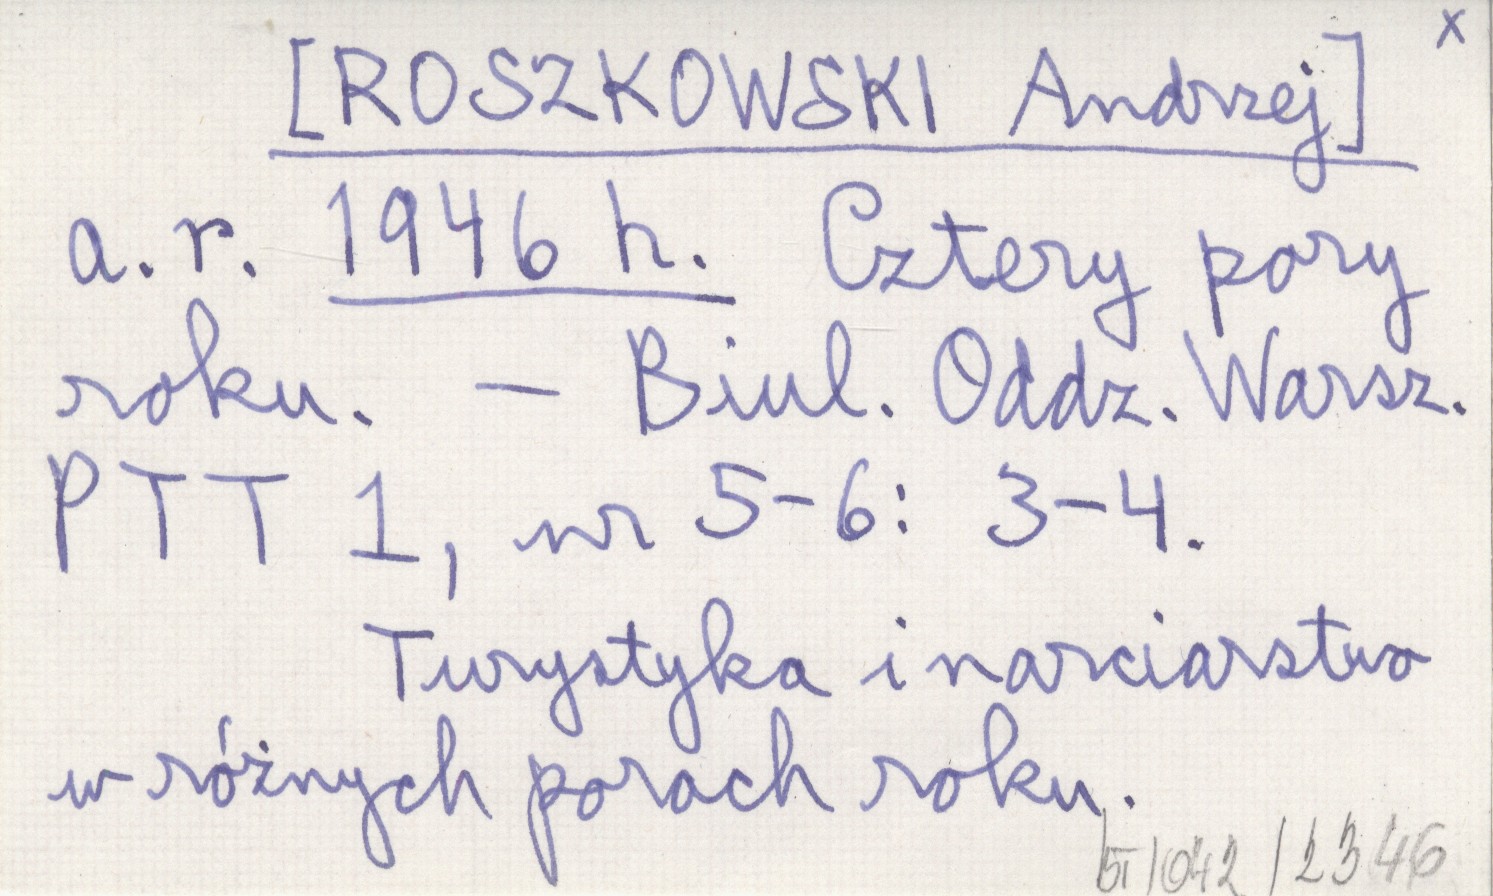 x
[ROSZKOWSKI Andrzej]
a. r. 1946 h. Cztery pory
roku. — Biul. Oddz. Warsz.
PTT 1, nr 5-6: 3-4.
Turystyka i narciarstwo
w różnych porach roku.
/042/2346